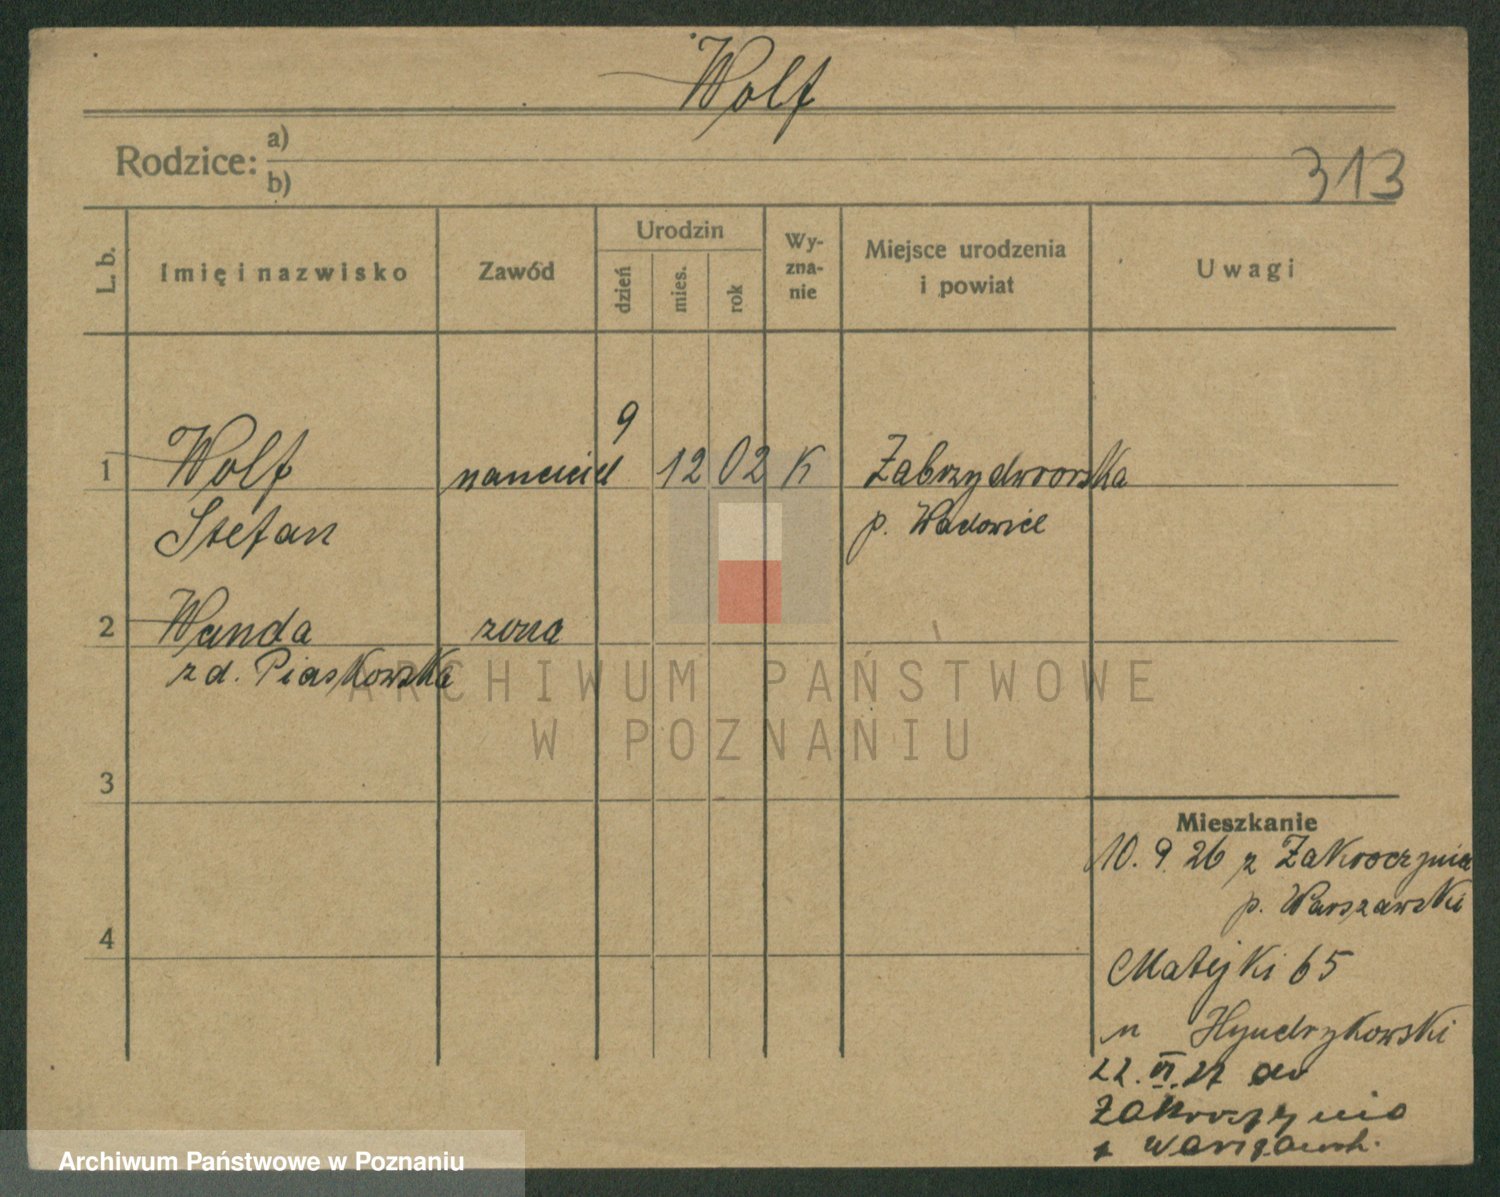 Wolf
Rodzice: a)
b)
313
L. b.
Imię i nazwisko
Zawód
Urodzin
dzień
mies.
rok
Wy-
zna-
nie
Miejsce urodzenia
i powiat
Uwagi
9
1 Wolf 12 02 K Zabrzydworska
Stefan p. Wadowice
2 Wanda zona
zd. Piaskowska
ARCHIWUM PAŃSTWOWE
W POZNANIU
3
Mieszkanie
10. 9. 26 z Zakroczynia
p. Warszawski
4
Matejki 65
Hyndrykowski
22. VI. 27 do
Archiwum Państwowe w Poznaniu